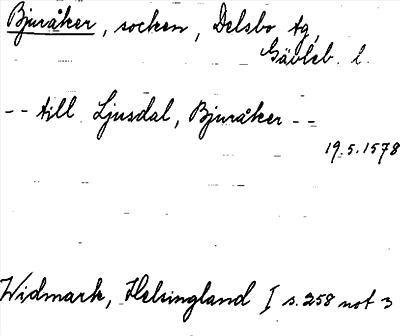 Bjuråker, socken, Delsbo tg,
Gävleb. l.
-- till Ljusdal, Bjuråker --
19.5.1578
Widmark, Helsingland I s. 258 not 3